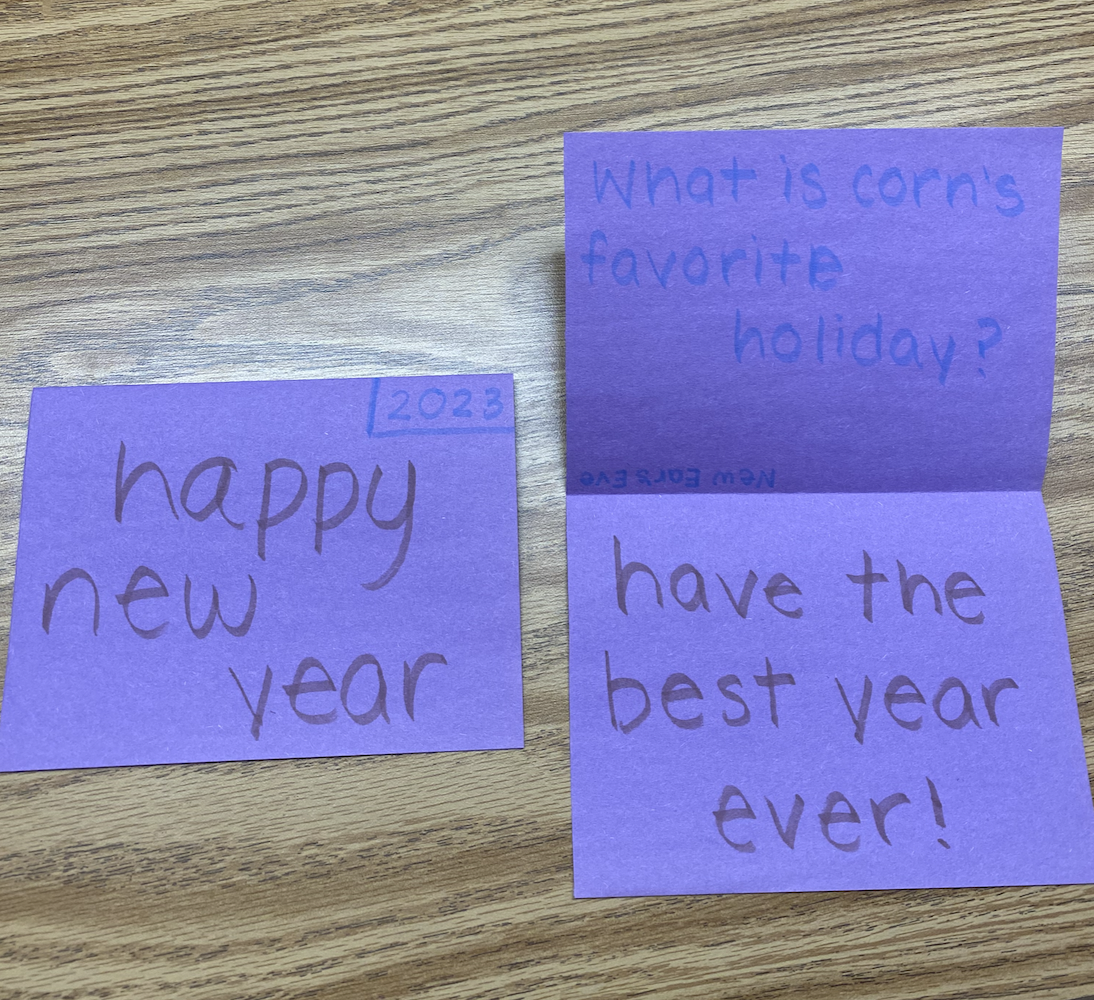 2023
happy
new
year
What is corn's
favorite
holiday?
New Ears Eve
have the
best year
ever!